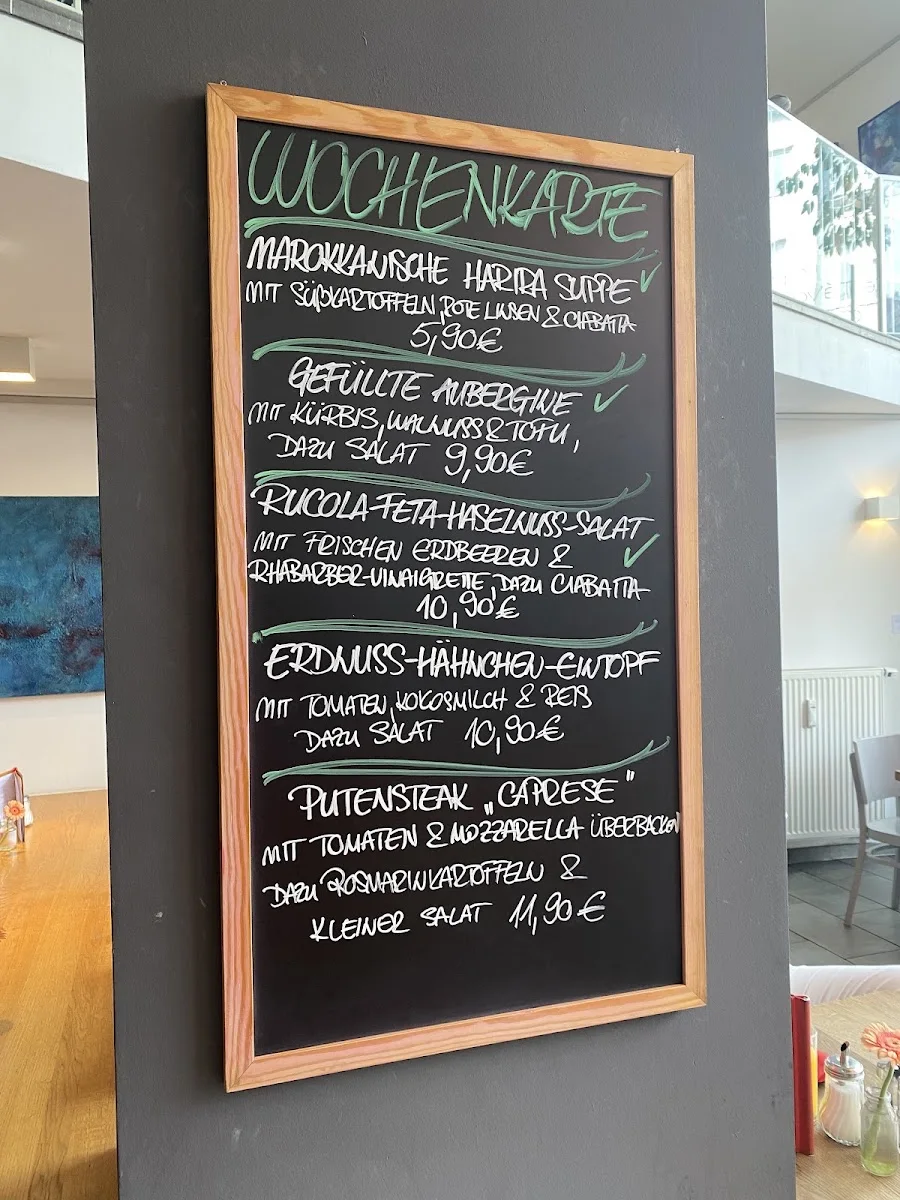 WOCHENKARTE
MAROKKANISCHE HARIRA SUPPE ✓
MIT SÜßKARTOFFELN, ROTE LINSEN & CIABATTA
5,90€
GEFÜLLTE AUBERGINE ✓
MIT KÜRBIS, WALNUSS & TOFU,
DAZU SALAT 9,90€
RUCOLA-FETA-HASELNUSS-SALAT
MIT FRISCHEN ERDBEEREN & ✓
RHABARBER-VINAIGRETTE, DAZU CIABATTA
10,90€
ERDNUSS-HÄHNCHEN-EINTOPF
MIT TOMATEN, KOKOSMILCH & REIS
DAZU SALAT 10,90€
PUTENSTEAK „CAPRESE"
MIT TOMATEN & MOZZARELLA ÜBERBACKEN
DAZU ROSMARINKARTOFFELN &
KLEINER SALAT 11,90€